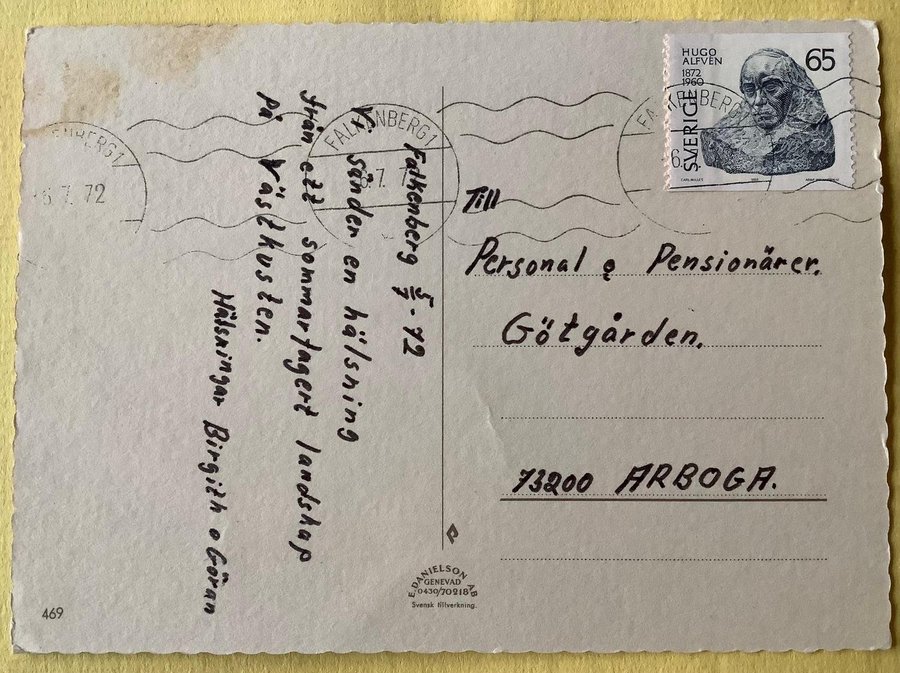 Falkenberg 5/7 - 72
Vi sänder en hälsning
från ett sommarfagert landskap
på Västkusten.
Hälsningar Birgith o Göran
HUGO
ALFVÉN
1872
1960
65
SVERIGE
FALKENBERG 1
6.7.72
FALKENBERG 1
6.7.7
FALKENBERG
6.
Till
Personal o Pensionärer.
Götgården.
73200 ARBOGA.
E. DANIELSON AB
GENEVAD
0430/70218
Svensk tillverkning.
469